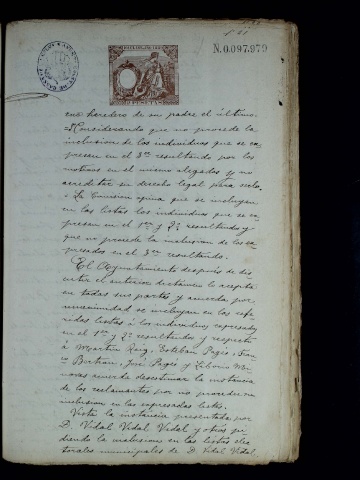 N.0.097.979
como heredero de su padre el último.
Considerando que no procede la
inclusion de los individuos que se ex
presan en el 3er resultando por los
motivos en el mismo alegados y no
acreditar su derecho legal para serlo.
La Comision opina que se incluyan
en las listas los individuos que se ex
presan en el 1er y 2º resultandos y
que no procede la inclusion de los ex
presados en el 3er resultando.
El Ayuntamiento despues de dis
cutir el anterior dictámen lo acepta
en todas sus partes y acuerda por
unanimidad se incluyan en las refe
ridas listas á los individuos expresados
en el 1er y 2º resultandos y respecto
á Martin Roig, Esteban Pagés, Fran
co Bertran, José Pagés y Liborio
acuerda desestimar la instancia
de los reclamantes por no proceder su
inclusion en las expresadas listas.
Vista la instancia presentada por
D. Vidal Vidal Vidal y otros pi
diendo la inclusion en las listas elec
torales municipales de D. Vidal Vidal,